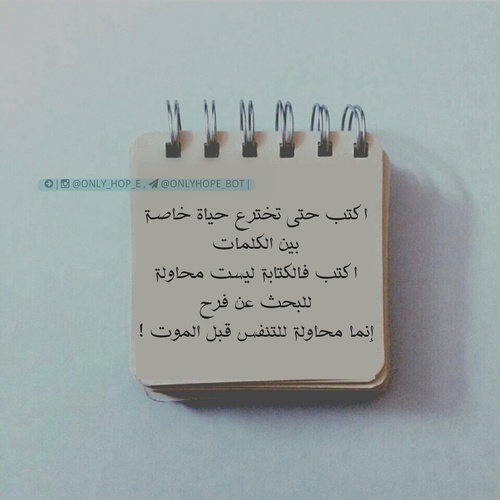 | @ONLY_HOP_E , @ONLYHOPE_BOT |
اكتب حتى تخترع حياة خاصة
بين الكلمات
اكتب فالكتابة ليست محاولة
للبحث عن فرح
إنما محاولة للتنفس قبل الموت !